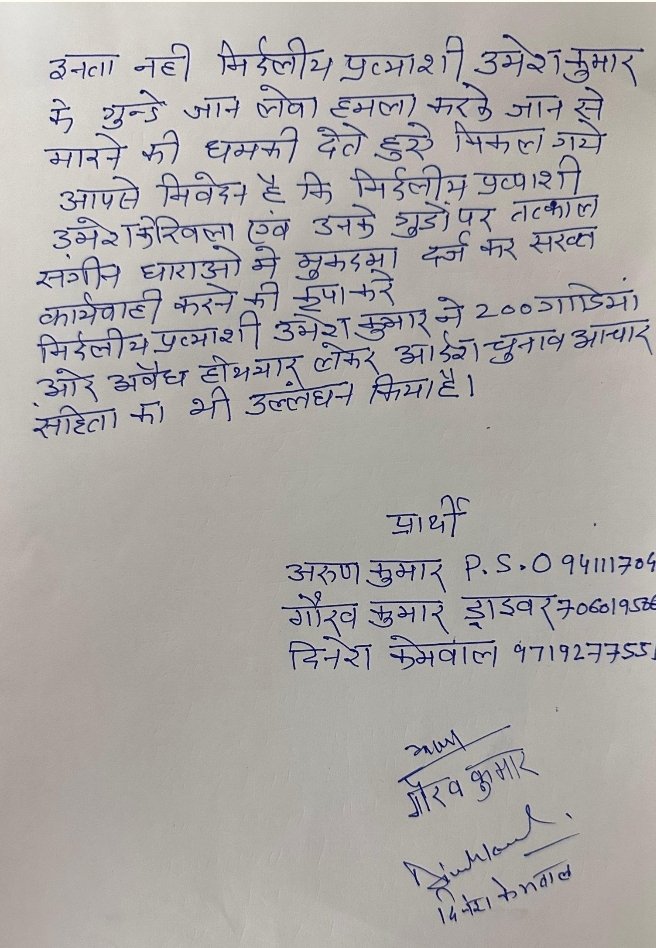 इनता नही निर्दलीय प्रत्याशी उमेश कुमार
के गुन्डे जान लेवा हमला करके जान से
मारने की धमकी देते हुऐ निकल गये
आपसे निवेदन है कि निर्दलीय प्रत्याशी
उमेश के खिला एंव उनके गुडों पर तत्काल
संगीन धाराओ मे मुकदमा दर्ज कर सख्त
कार्यवाही करने की कृपा करे
निर्दलीय प्रत्याशी उमेश कुमार ने 200 गाडिया
ओर अवैध हथियार लेकर आर्दश चुनाव आचार
संहिता का भी उल्लंघन किया है।
प्रार्थी
अरुण कुमार P.S.O 94111704
गौरव कुमार ड्राइवर 706019586
दिनेश केमवाल 9719277551
गौरव कुमार
दिनेश केमवाल